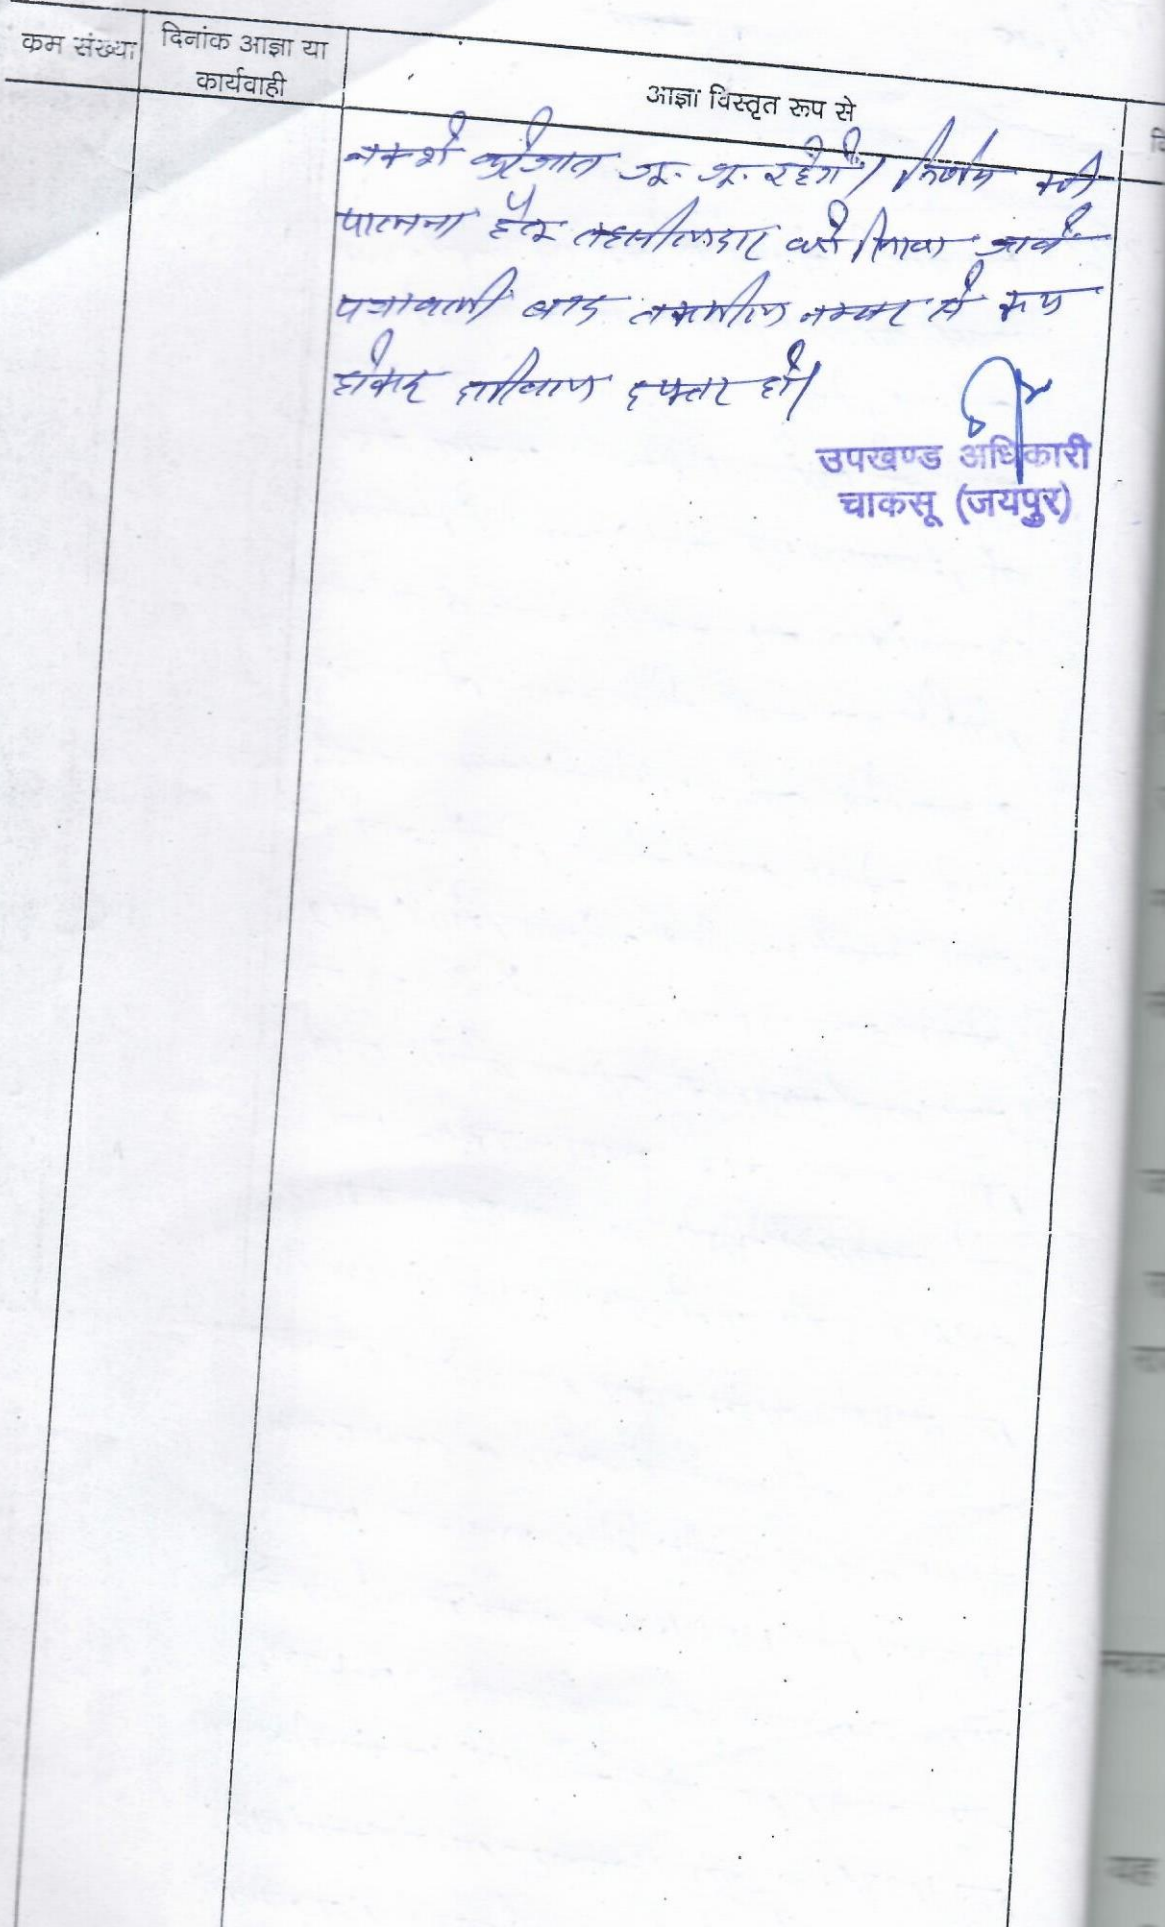 क्रम संख्या
दिनांक आज्ञा या
कार्यवाही
आज्ञा विस्तृत रूप से
नक्शे कुरेजात जू. जू. रहेंगे। निर्णय की
पालना हेतु तहसीलदार को लिखा जावे
पत्रावली बाद तकमील नम्बर से कम
होकर दाखिल दफ्तर हो।
उपखण्ड अधिकारी
चाकसू (जयपुर)